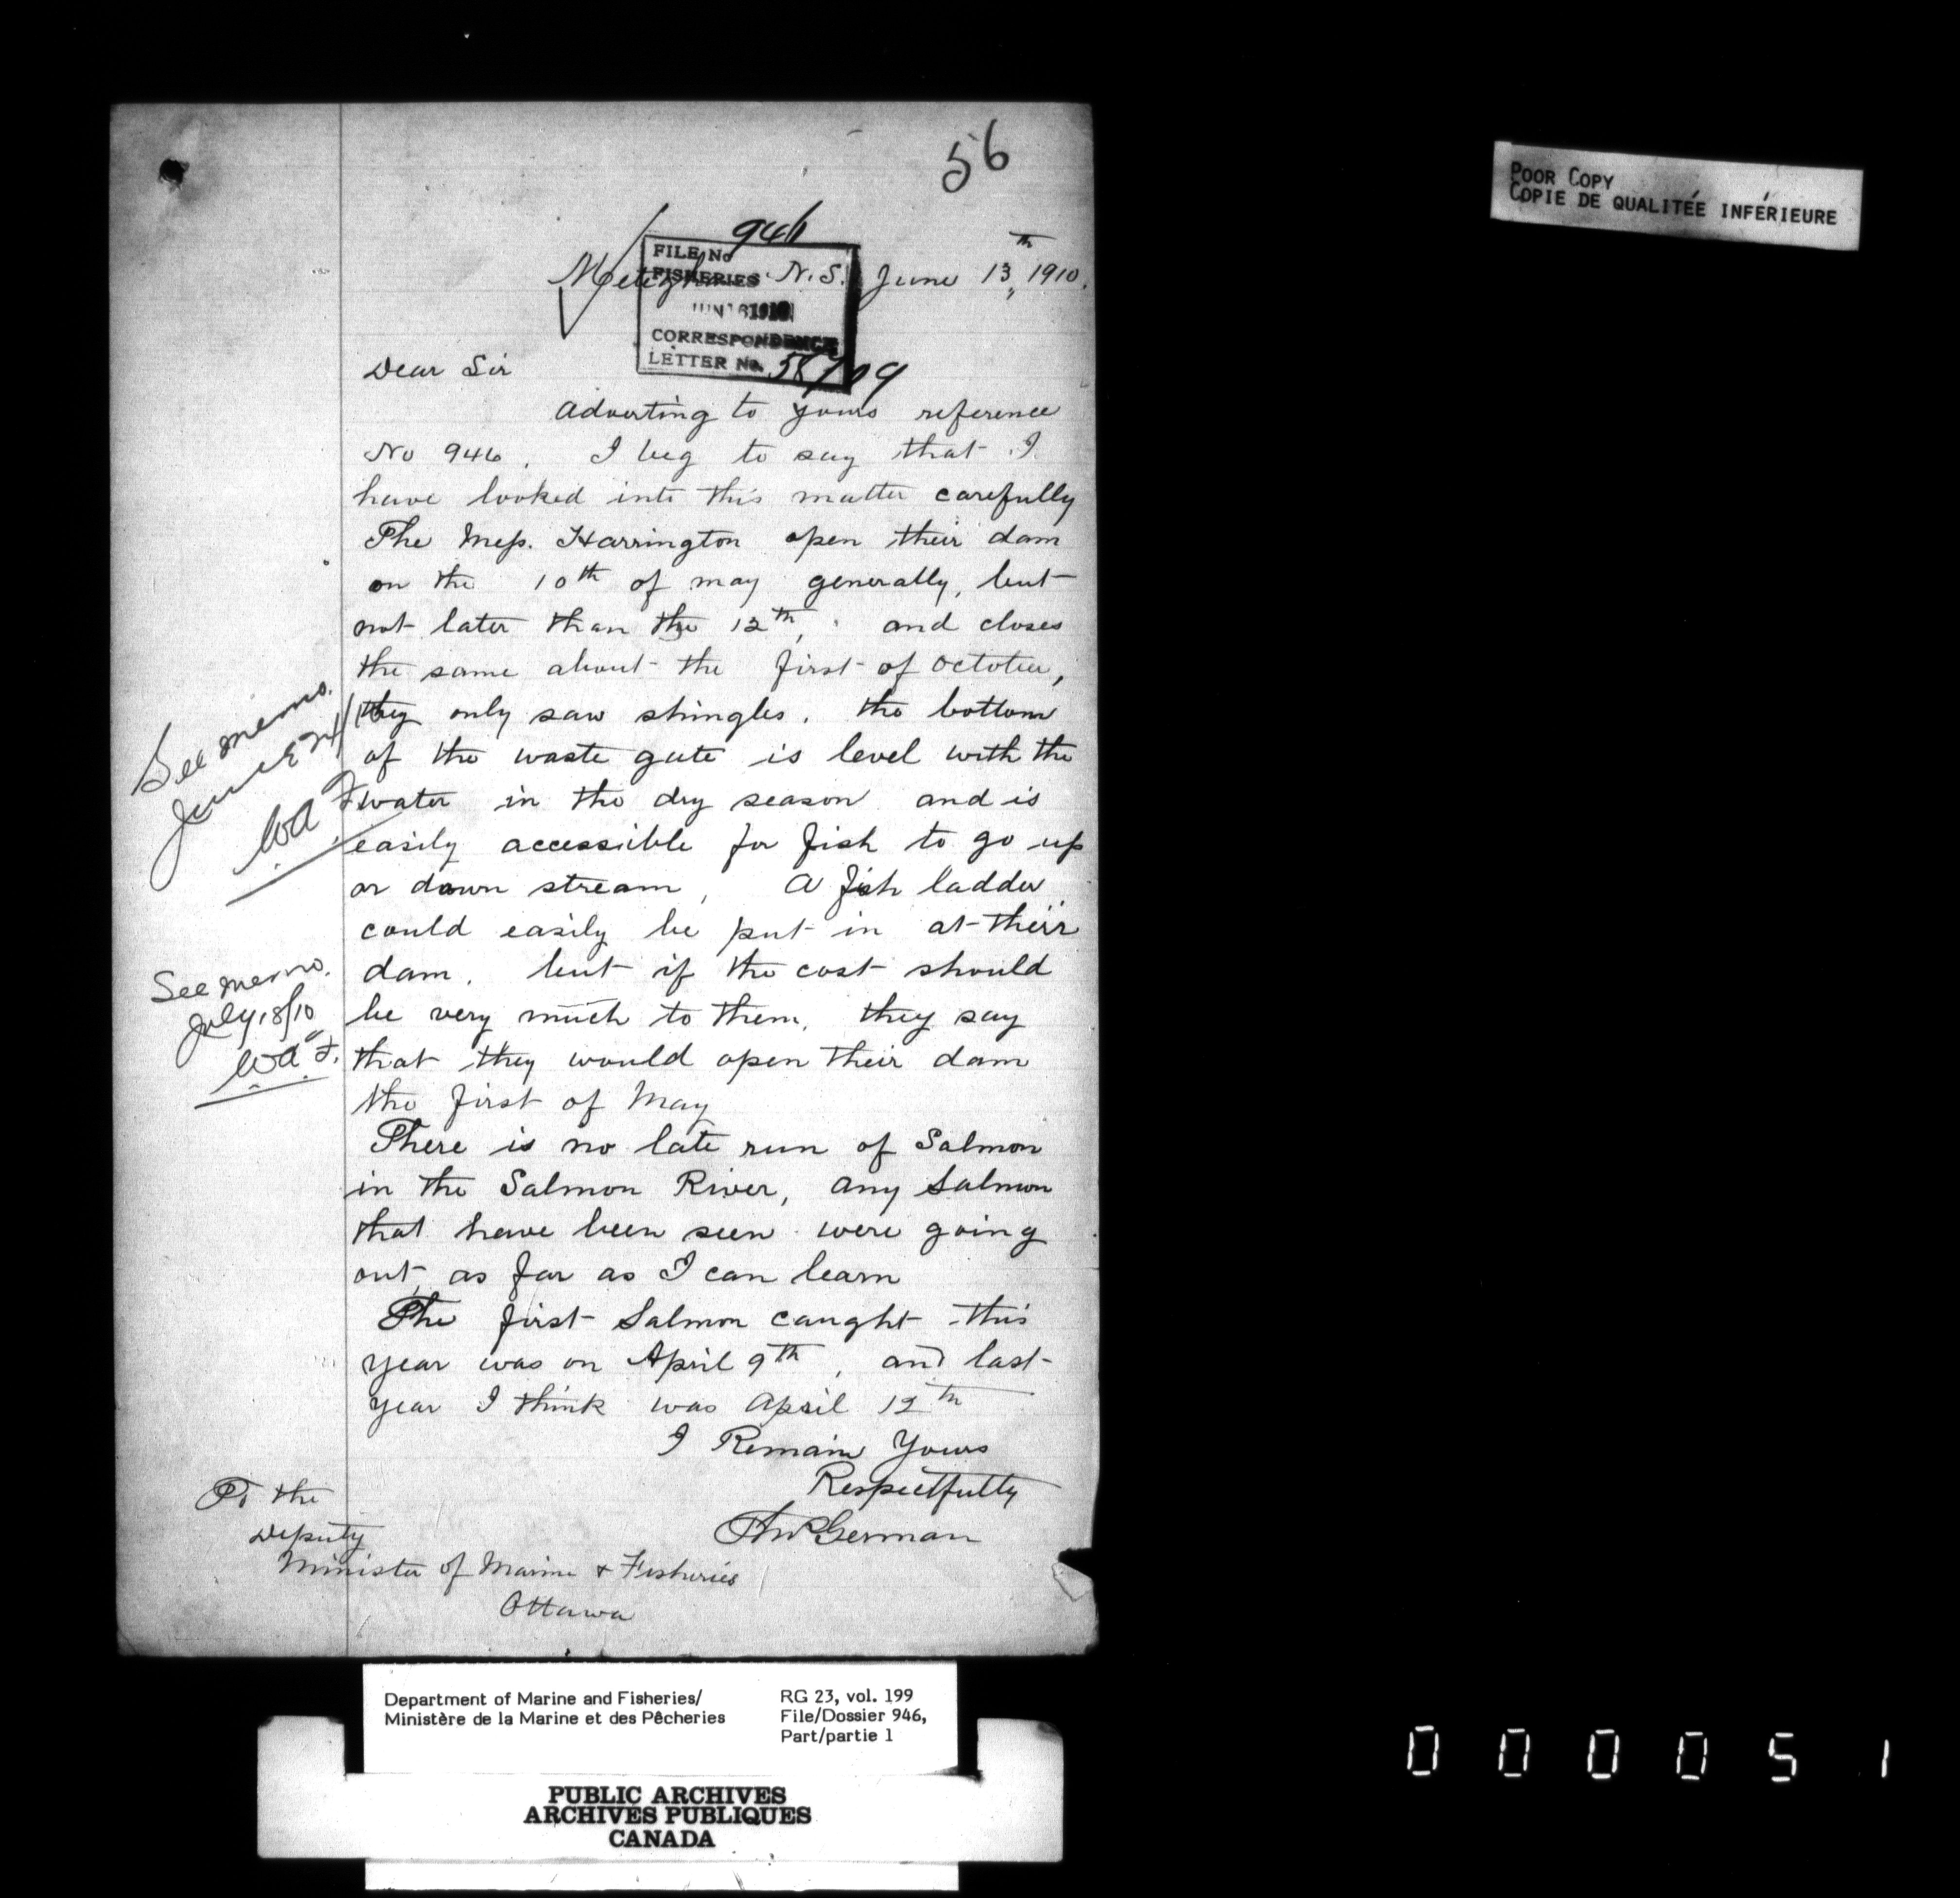 56
POOR COPY
COPIE DE QUALITÉE INFÉRIEURE
946
FILE No
FISHERIES
JUN 16 1910
CORRESPONDENCE
LETTER No. 58709
Meteghan N.S. June 13th 1910.
Dear Sir
Adverting to yours reference
No 946. I beg to say that I
have looked into this matter carefully
The Mess. Harrington open their dam
on the 10th of may generally, but
not later than the 12th, and closes
the same about the first of October,
they only saw shingles. the bottom
of the waste gate is level with the
water in the dry season and is
easily accessible for fish to go up
or down stream, A fish ladder
could easily be put in at their
dam. but if the cost should
be very much to them, they say
that they would open their dam
the first of May
There is no late run of Salmon
in the Salmon River, any Salmon
that have been seen were going
out as far as I can learn
The first Salmon caught this
year was on April 9th, and last
year I think was April 12th
I Remain Yours
Respectfully
German
To the
Deputy
Minister of Marine & Fisheries
Ottawa
See memo.
June
W.A.F.
See memo.
July 18/10
W.A.F.
Department of Marine and Fisheries/
Ministère de la Marine et des Pêcheries
RG 23, vol. 199
File/Dossier 946,
Part/partie 1
PUBLIC ARCHIVES
ARCHIVES PUBLIQUES
CANADA
000051